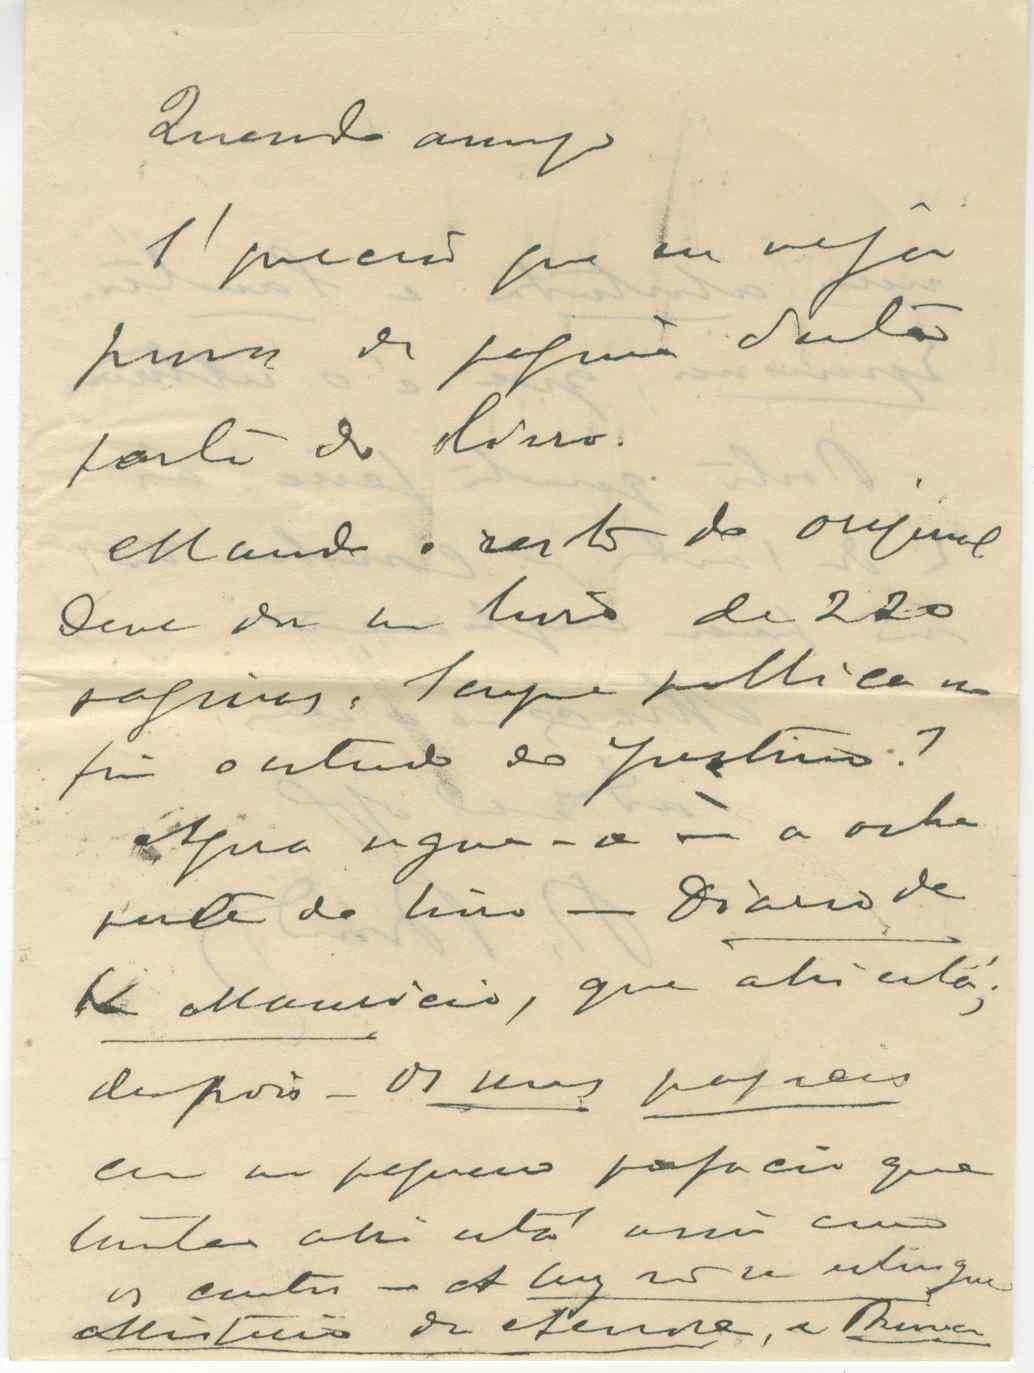 Querido amigo
É preciso que eu veja
provas de pagina desta
parte do livro.
Mando o resto do original
Deve dar um livro de 220
paginas. Sempre publica no
fim o estudo do Justino?
Agora segue-se — a outra
parte do livro — Diario de
K Mauricio, que ahi está;
depois — Os meus papeis
com um pequeno prefacio que
tambem ahi está assim como
os contos — A luz não se extingue
Misterio da Arvore, e Prima